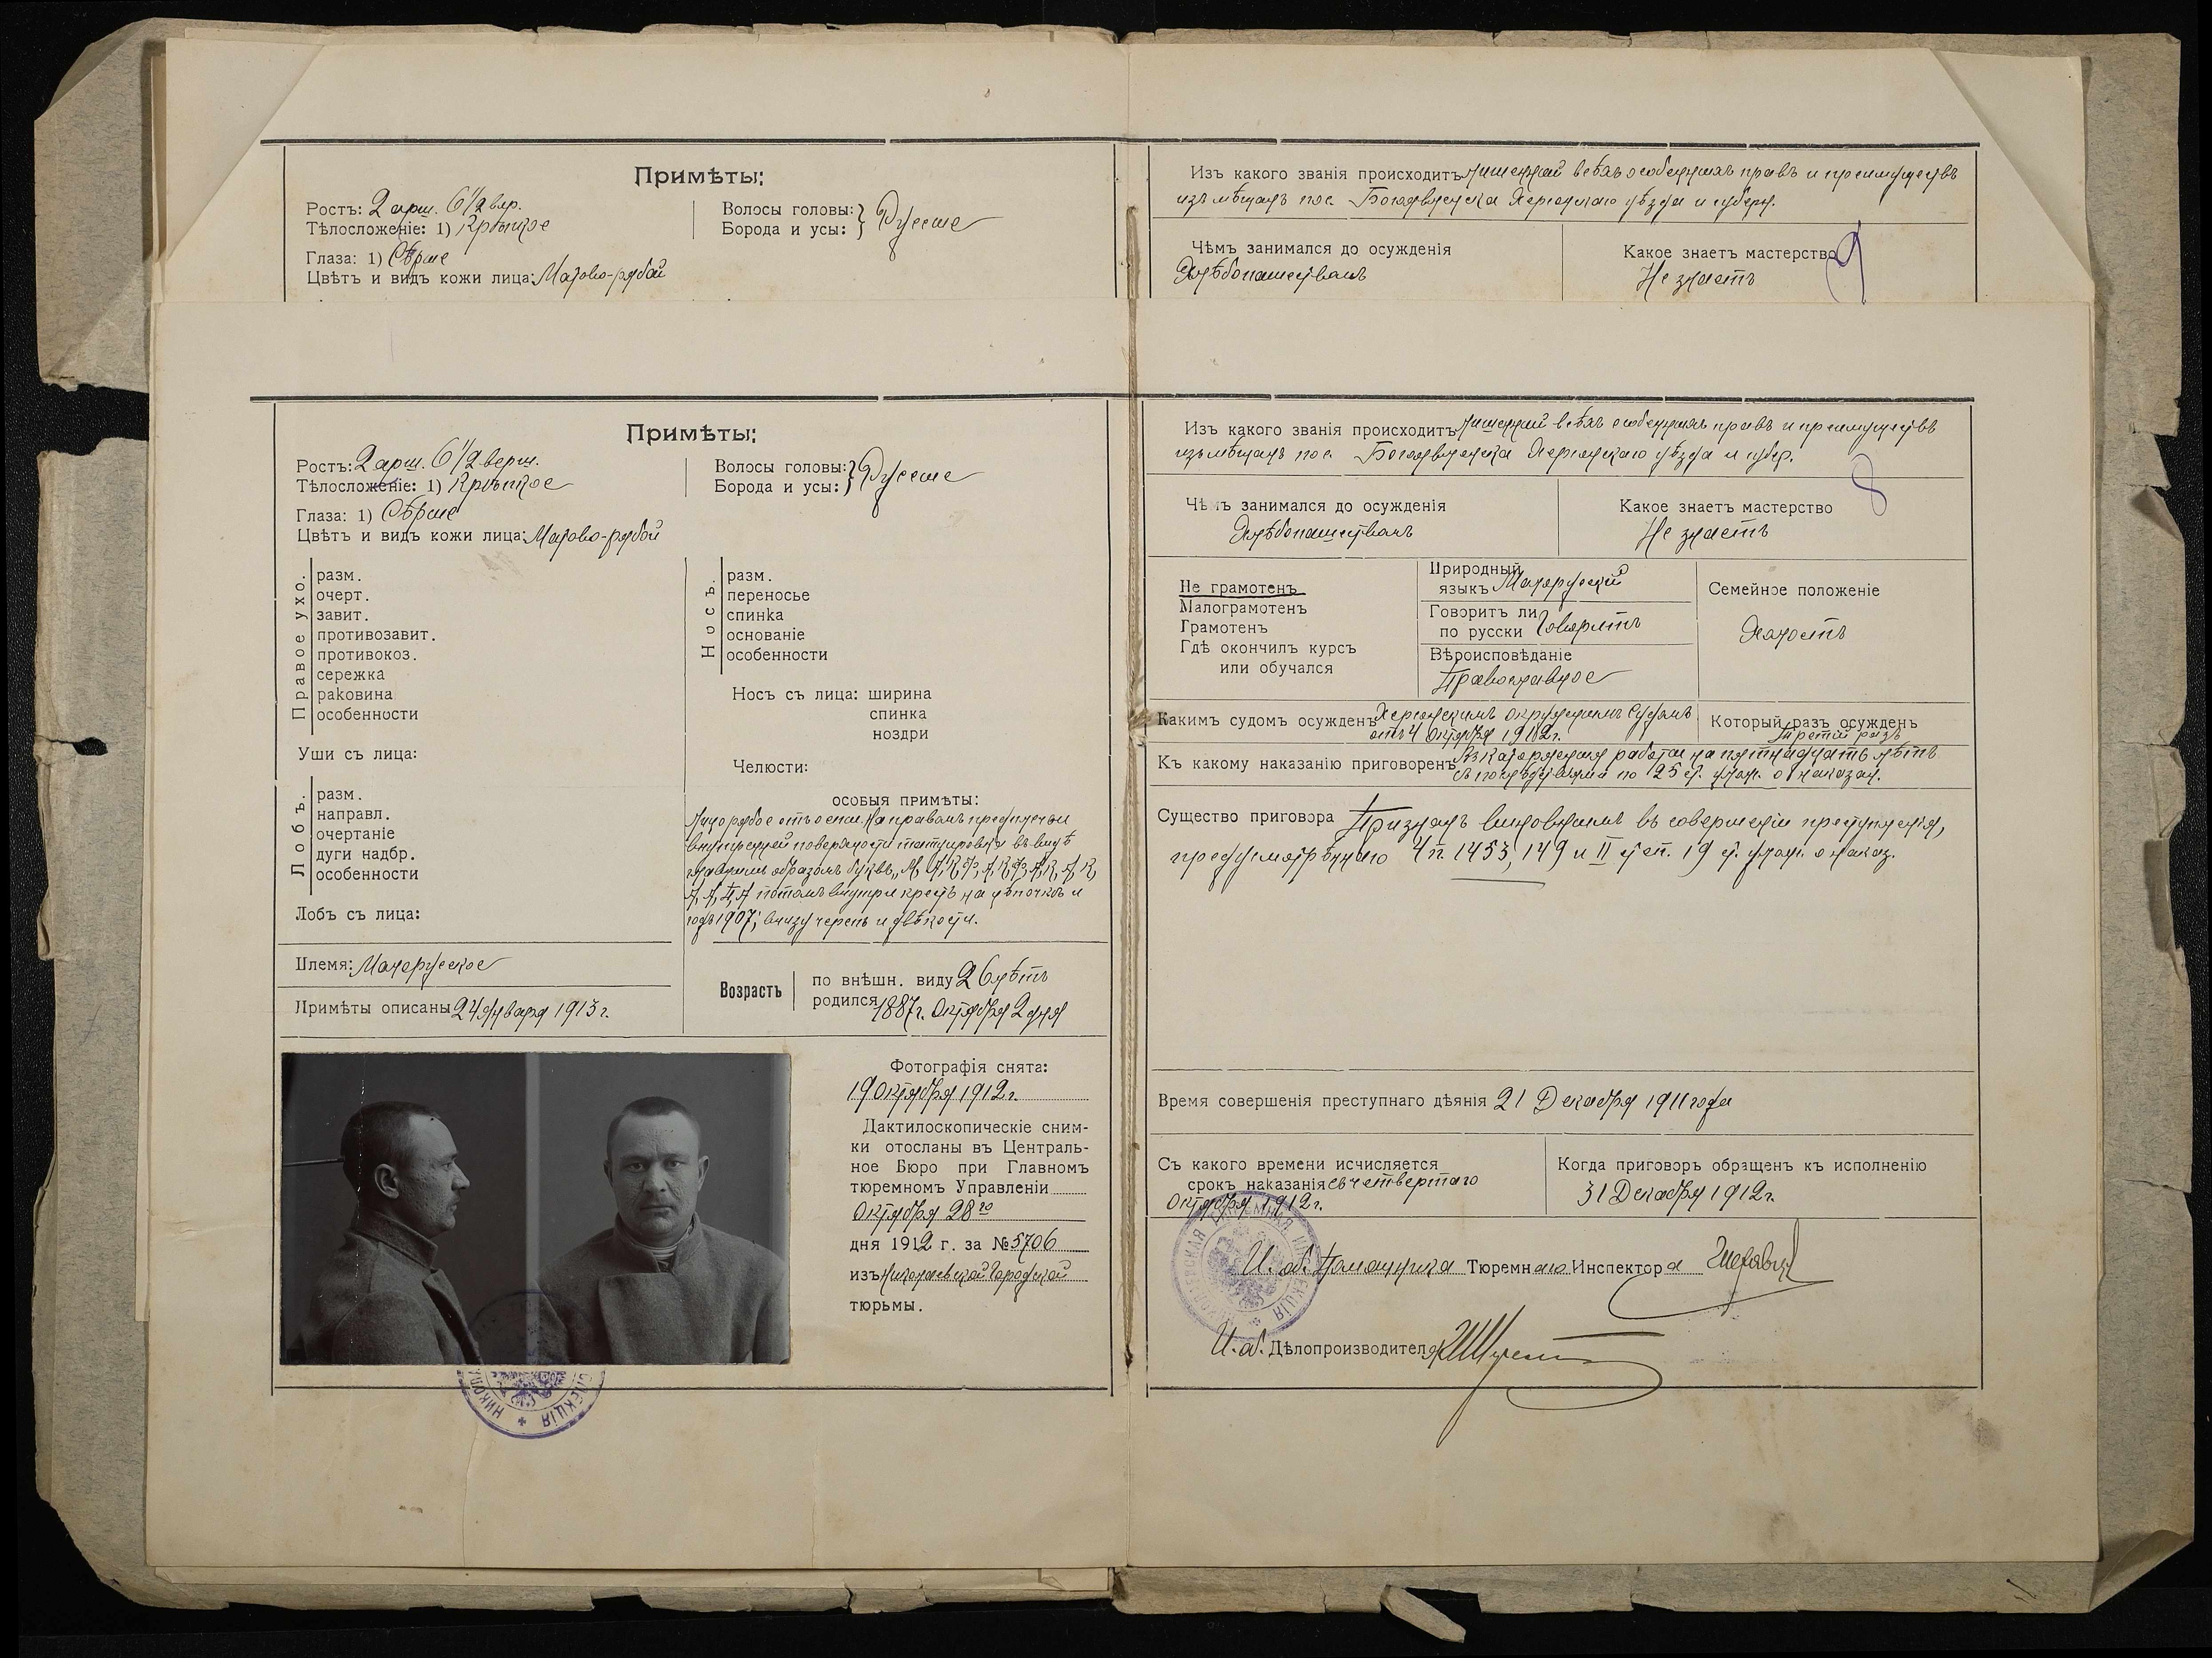 Примѣты:
Ростъ: 2 арш. 6 1/2 вер.
Тѣлосложеніе: 1) Крѣпкое
Глаза: 1) Сѣрые
Цвѣтъ и видъ кожи лица: Матово-рябой
Волосы головы: } Русые
Борода и усы:
Изъ какого званія происходитъ Лишенный всѣхъ особенныхъ правъ и преимуществъ
изъ мѣщанъ пос. Богоявленска Херсонскаго уѣзда и губерн.
Чѣмъ занимался до осужденія
Хлѣбопашествомъ
Какое знаетъ мастерство
Не знаетъ
9
Примѣты:
Ростъ: 2 арш. 6 1/2 верш.
Тѣлосложеніе: 1) Крѣпкое
Глаза: 1) Сѣрые
Цвѣтъ и видъ кожи лица: Матово-рябой
Волосы головы: } Русые
Борода и усы:
Правое ухо.
разм.
очерт.
завит.
противозавит.
противокоз.
сережка
раковина
особенности
Уши съ лица:
Лобъ.
разм.
направл.
очертаніе
дуги надбр.
особенности
Лобъ съ лица:
Носъ.
разм.
переносье
спинка
основаніе
особенности
Носъ съ лица: ширина
спинка
ноздри
Челюсти:
особыя примѣты:
Лицо рябое отъ оспы. На правомъ предплечьи
внутренней поверхности татуировка въ видѣ
главнымъ образомъ буквъ
потомъ внутри крестъ на цѣпочкѣ и
годъ 1907; внизу черепъ и двѣ кости.
Племя: Малорусское
Примѣты описаны 24 Января 1913 г.
Возрастъ
по внѣшн. виду 26 лѣтъ
родился 1887 г. Октября 2 дня
Фотографія снята:
19 Октября 1912 г.
Дактилоскопическіе сним-
ки отосланы въ Централь-
ное Бюро при Главномъ
тюремномъ Управленіи
Октября 28го
дня 1912 г. за № 5706
изъ Николаевской Городской
тюрьмы.
Изъ какого званія происходитъ Лишенный всѣхъ особенныхъ правъ и преимуществъ
изъ мѣщанъ пос. Богоявленска Херсонскаго уѣзда и губер.
8
Чѣмъ занимался до осужденія
Хлѣбопашествомъ
Какое знаетъ мастерство
Не знаетъ
Не грамотенъ
Малограмотенъ
Грамотенъ
Гдѣ окончилъ курсъ
или обучался
Природный
языкъ Малорусскій
Говоритъ ли
по русски Говоритъ
Вѣроисповѣданіе
Православное
Семейное положеніе
Холостъ
Какимъ судомъ осужденъ Херсонскимъ Окружнымъ Судомъ
отъ 4 Октября 1912 г.
Который разъ осужденъ
Третій разъ
Къ какому наказанію приговоренъ Въ каторжныя работы на пятнадцать лѣтъ
съ послѣдствіями по 25 ст. улож. о наказан.
Существо приговора Признанъ виновнымъ въ совершеніи преступленія,
предусмотрѣннаго 4 п. 1453, 149 и II степ. 19 ст. улож. о наказ.
Время совершенія преступнаго дѣянія 21 Декабря 1911 года
Съ какого времени исчисляется
срокъ наказанія съ четвертаго
Октября 1912 г.
Когда приговоръ обращенъ къ исполненію
31 Декабря 1912 г.
И. об. Помощника Тюремнаго Инспектора
И. об. Дѣлопроизводителя